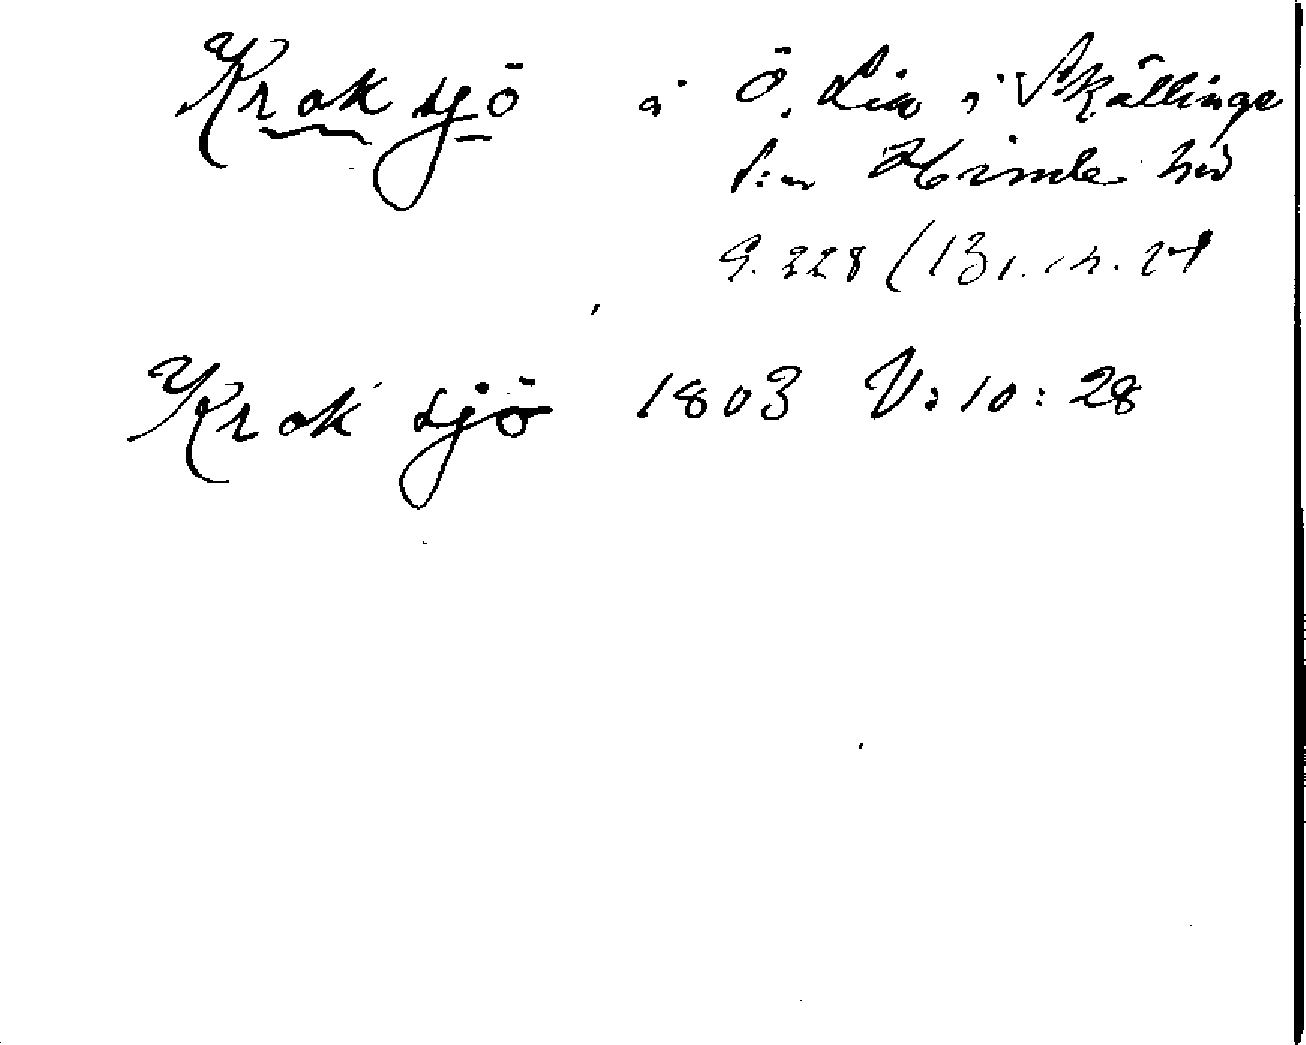 Kroksjö å Ö. Lia i Skällinge
s:n Himle hd
G. 328 (13
Kroksjö 1803 V:10:28